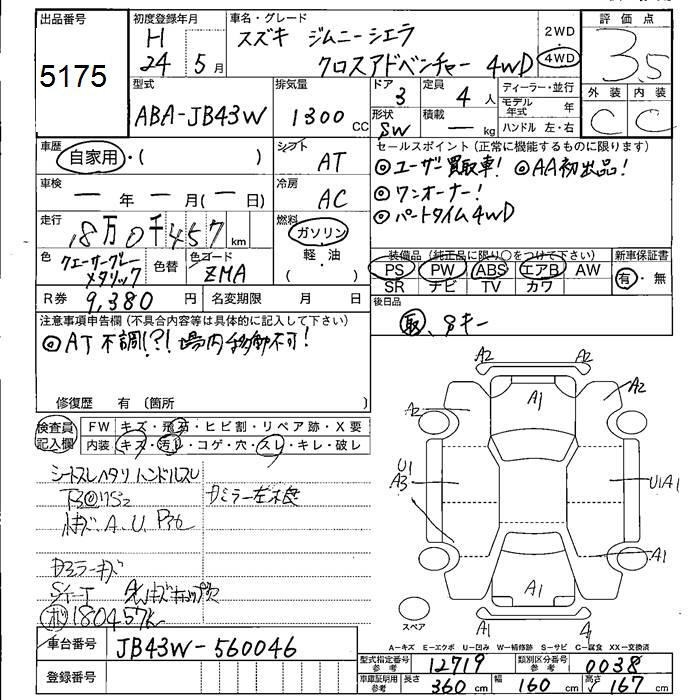 出品番号
5175
初度登録年月
H
24 5月
車名・グレード
スズキ ジムニーシエラ
クロスアドベンチャー 4WD
2WD
4WD
評価点
3.5
外装 内装
C C
型式
ABA-JB43W
排気量
1300 CC
ドア 3
定員 4 人
形状 SW
積載 ー kg
ディーラー・並行
モデル年式 年
ハンドル 左・右
車歴
自家用・( )
シフト
AT
車検
ー年ー月(ー日)
冷房
AC
走行
18万0千457 km
燃料
ガソリン
軽・油
( )
色
クエーサーグレーメタリック
色替
色コード
ZMA
R券 9,380 円
名変期限 月 日
セールスポイント(正常に機能するものに限ります)
◎ユーザー買取車! ◎AA初出品!
◎ワンオーナー!
◎パートタイム4WD
装備品(純正品に限り○をつけて下さい)
PS PW ABS エアB AW
SR ナビ TV カワ
新車保証書
有・無
後日品
取、Sキー
注意事項申告欄(不具合内容等は具体的に記入して下さい)
◎AT不調!?! 場内移動不可!
修復歴 有(箇所
検査員記入欄
FW キズ・飛石・ヒビ割・リペア跡・X要
内装 キズ・汚れ・コゲ・穴・スレ・キレ・破レ
シートスレヘタリ ハンドルスレ
Dミラー左不良
A.U.
Dミラーキズ
180457K
車台番号 JB43W-560046
登録番号
A2 A2
A2 A1 A2
U1
A3
U1A1
A1
A1
スペア
A1 A1
A-キズ E-エクボ U-凹み W-補修跡 S-サビ C-腐食 XX-交換済
型式指定番号 参考 12719
類別区分番号 参考 0038
車庫証明用 参考 長さ 360 cm 幅 160 cm 高さ 167 cm